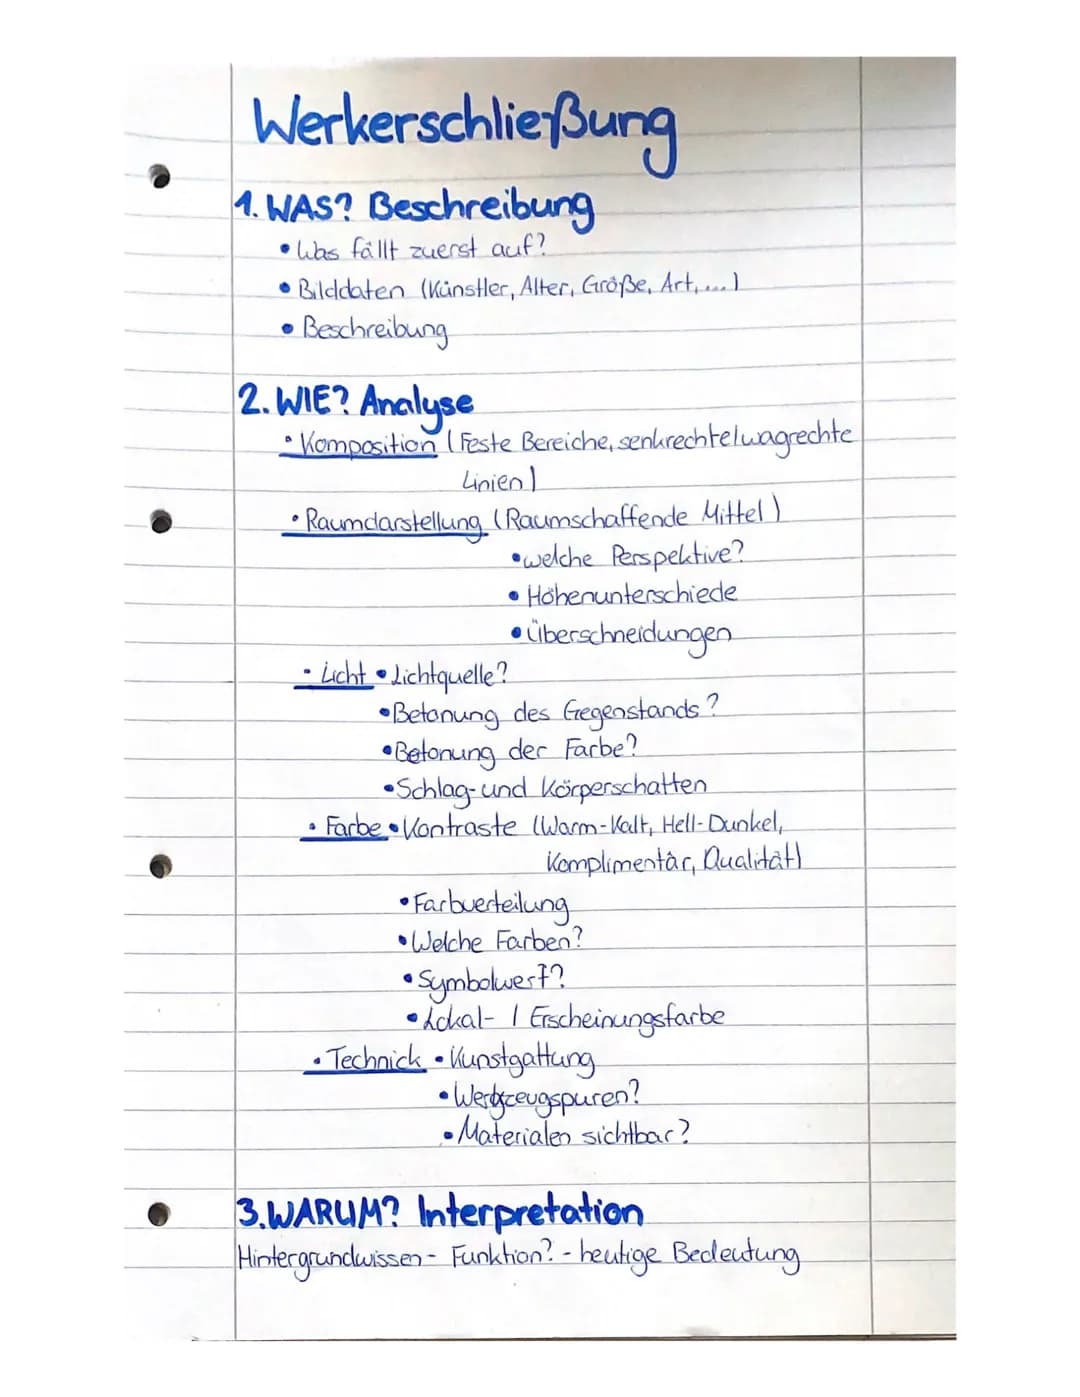 Werkerschließung
1. WAS? Beschreibung
• Was fällt zuerst auf?
• Bilddaten (Künstler, Alter, Größe, Art,...)
• Beschreibung
2. WIE? Analyse
• Komposition (Feste Bereiche, senkrechte/wagrechte
Linien)
• Raumdarstellung (Raumschaffende Mittel)
• welche Perspektive?
• Höhenunterschiede
• Überschneidungen
• Licht • Lichtquelle?
• Betonung des Gegenstands?
• Betonung der Farbe?
• Schlag- und Körperschatten
• Farbe • Kontraste (Warm-Kalt, Hell-Dunkel,
Komplimentär, Qualität)
• Farbverteilung
• Welche Farben?
• Symbolwert?
• Lokal- / Erscheinungsfarbe
• Technick • Kunstgattung
• Werkzeugspuren?
• Materialen sichtbar?
3. WARUM? Interpretation
Hintergrundwissen - Funktion? - heutige Bedeutung